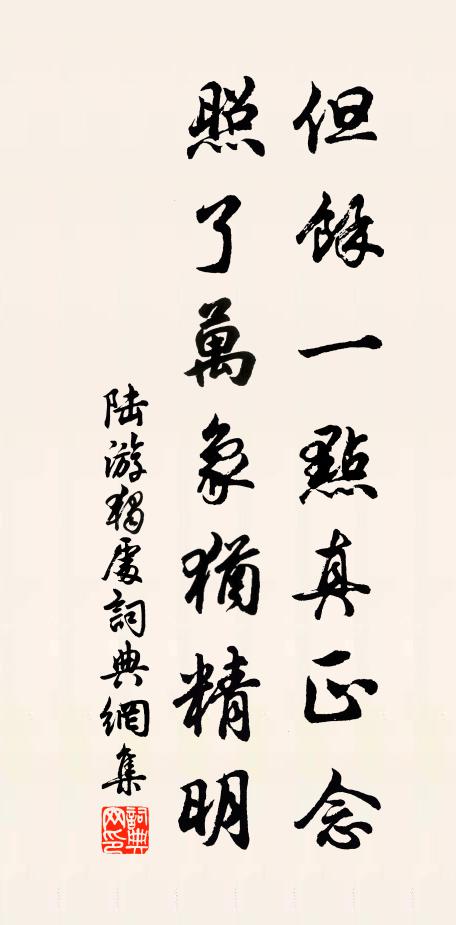 但餘一點真正念
照了萬象猶精明
陆游獨處詞典網集
詞典網印